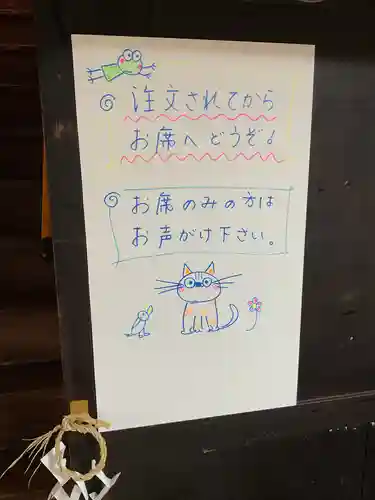 注文されてから
お席へどうぞ!
お席のみの方は
お声がけ下さい。